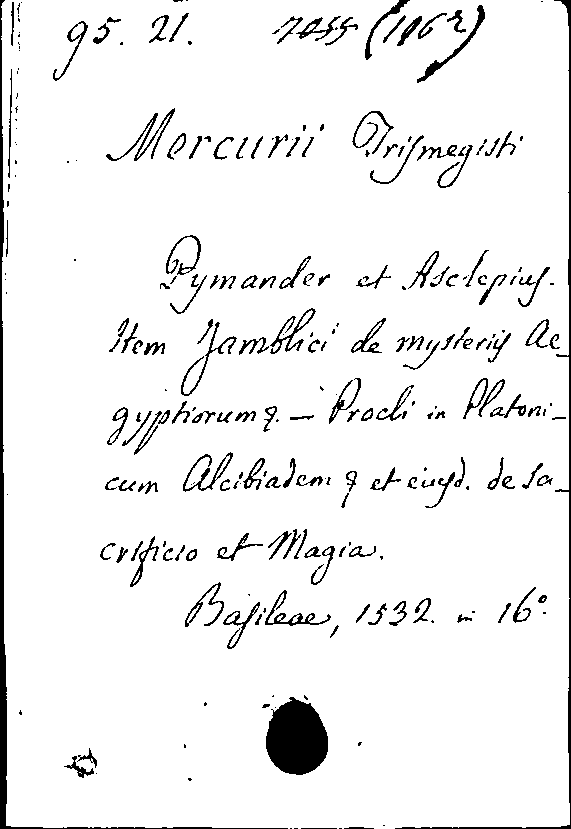 95. 21. 7055 (116²)
Mercurii Triſmegisti
Pymander et Asclepiuſ.
Item Jamblici de mysteriiſ Ae_
gyptiorum &. — Procli in Platoni_
cum Alcibiadem & et eiuſd. de sa_
crificio et Magia.
Baſileae, 1532. in 16°.